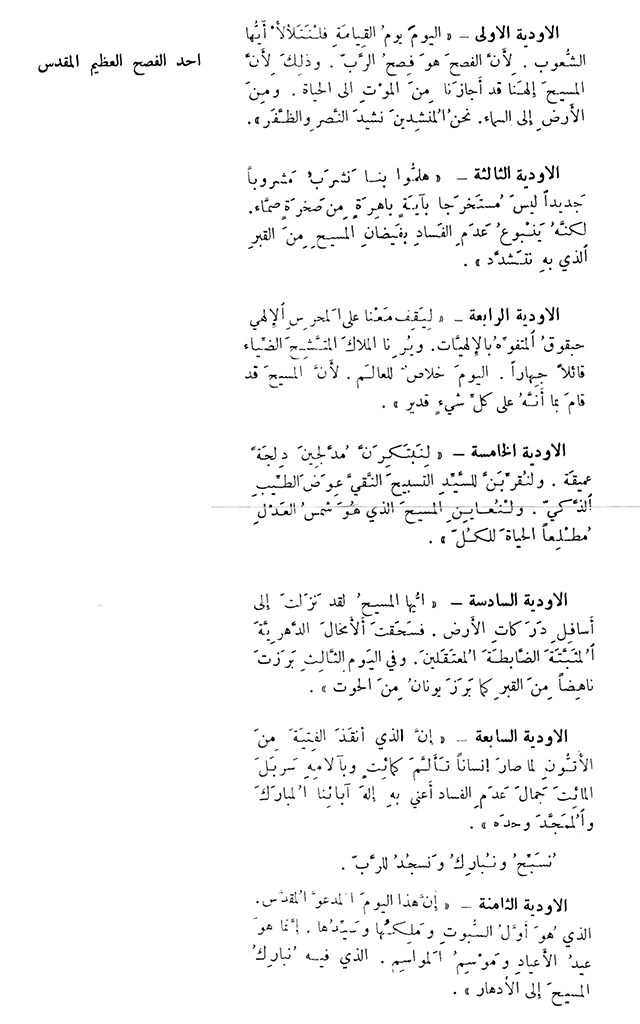 احد الفصح العظيم المقدس
الاودية الاولى – « اليومَ يومُ القِيامَةِ فلنَتَلَألأْ أيُّها
الشُّعوب . لِأَنَّ الفِصحَ هوَ فِصحُ الرَّبّ . وذلِكَ لِأَنَّ
المسيحَ إلهَنا قد أجازَنا مِنَ الموْتِ الى الحياة . ومِنَ
الأَرضِ إلى السماء. نحنُ المنشِدينَ نشيدَ النَّصرِ والظَّفَر ».
الاودية الثالثة – « هلمُّوا بنا نَشرَبْ مَشروباً
جَديداً ليسَ مُستَخرَجا بآيَةٍ باهِرَةٍ مِن صَخرَةٍ صمَّاء.
لكنَّهُ يَنْبوعُ عَدَمِ الفَسادِ بفَيضانِ المسيحِ مِنَ القبرِ
الذي بهِ نتَشدَّد » .
الاودية الرابعة – « لِيَقِف مَعَنا على المَحرِسِ الإلهي
حبقوقُ المتفوِّهُ بالإلهيَّات. ويُرِنا الملاكَ المتَّشِحَ الضِّياء
قائلاً جِهاراً . اليومَ خلاصٌ للعالَم . لأَنَّ المسيحَ قد
قامَ بما أَنَّهُ على كلِّ شيءٍ قدير » .
الاودية الخامسة – « لِنَبتَكِرَنَّ مُدَّلِجينَ دِلجَةً
عميقَة . ولنُقرِّبَنَّ للسَّيِّدِ التسبيحَ النَّقيَّ عِوَضَ الطِّيبِ
الذَّكيّ . ولْنُعايِنِ المسيحَ الذي هُوَ شمسُ العَدْلِ
مُطْلِعاً الحياةَ للكُلّ » .
الاودية السادسة – « ايُّها المسيحُ لقد نَزَلتَ إلى
أسافِلِ دَرَكاتِ الأَرض . فسَحَقتَ الأَمخالَ الدَّهرِيَّةَ
المُثَبَّتَةَ الضَّابِطَةَ المُعتَقَلين. وفي اليَومِ الثَّالِثِ بَرَزتَ
ناهِضاً مِنَ القبرِ كما بَرَزَ يونانُ مِنَ الحوت » .
الاودية السابعة – « إنَّ الذي أنقَذَ الفِتيَةَ مِنَ
الأَتُّونِ لما صارَ إنساناً تَأَلَّمَ كمائِتٍ وبآلامِهِ سَربَلَ
المائِتَ جَمالَ عَدَمِ الفساد أعني بهِ إلهَ آبائِنا المُبارَكَ
والمُمَجَّدَ وحدَه » .
نُسَبِّحُ ونُبارِكُ ونَسجُدُ للرَّبّ .
الاودية الثامنة – « إنَّ هذا اليومَ المَدعوَّ المُقدَّس.
الذي هُوَ أوَّلُ السُّبوتِ ومَلِكَتُها وسَيِّدُها . إنَّما هوَ
عيدُ الأَعيادِ ومَوْسِمُ المَواسِم . الذي فيهِ نُبارِكُ
المسيحَ إلى الأدهار » .